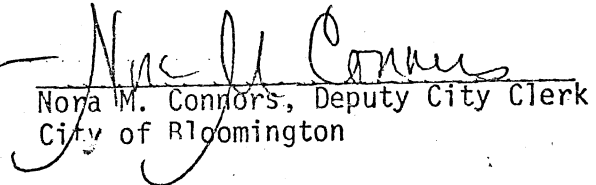 Nora M. Connors
Nora M. Connors, Deputy City Clerk
City of Bloomington